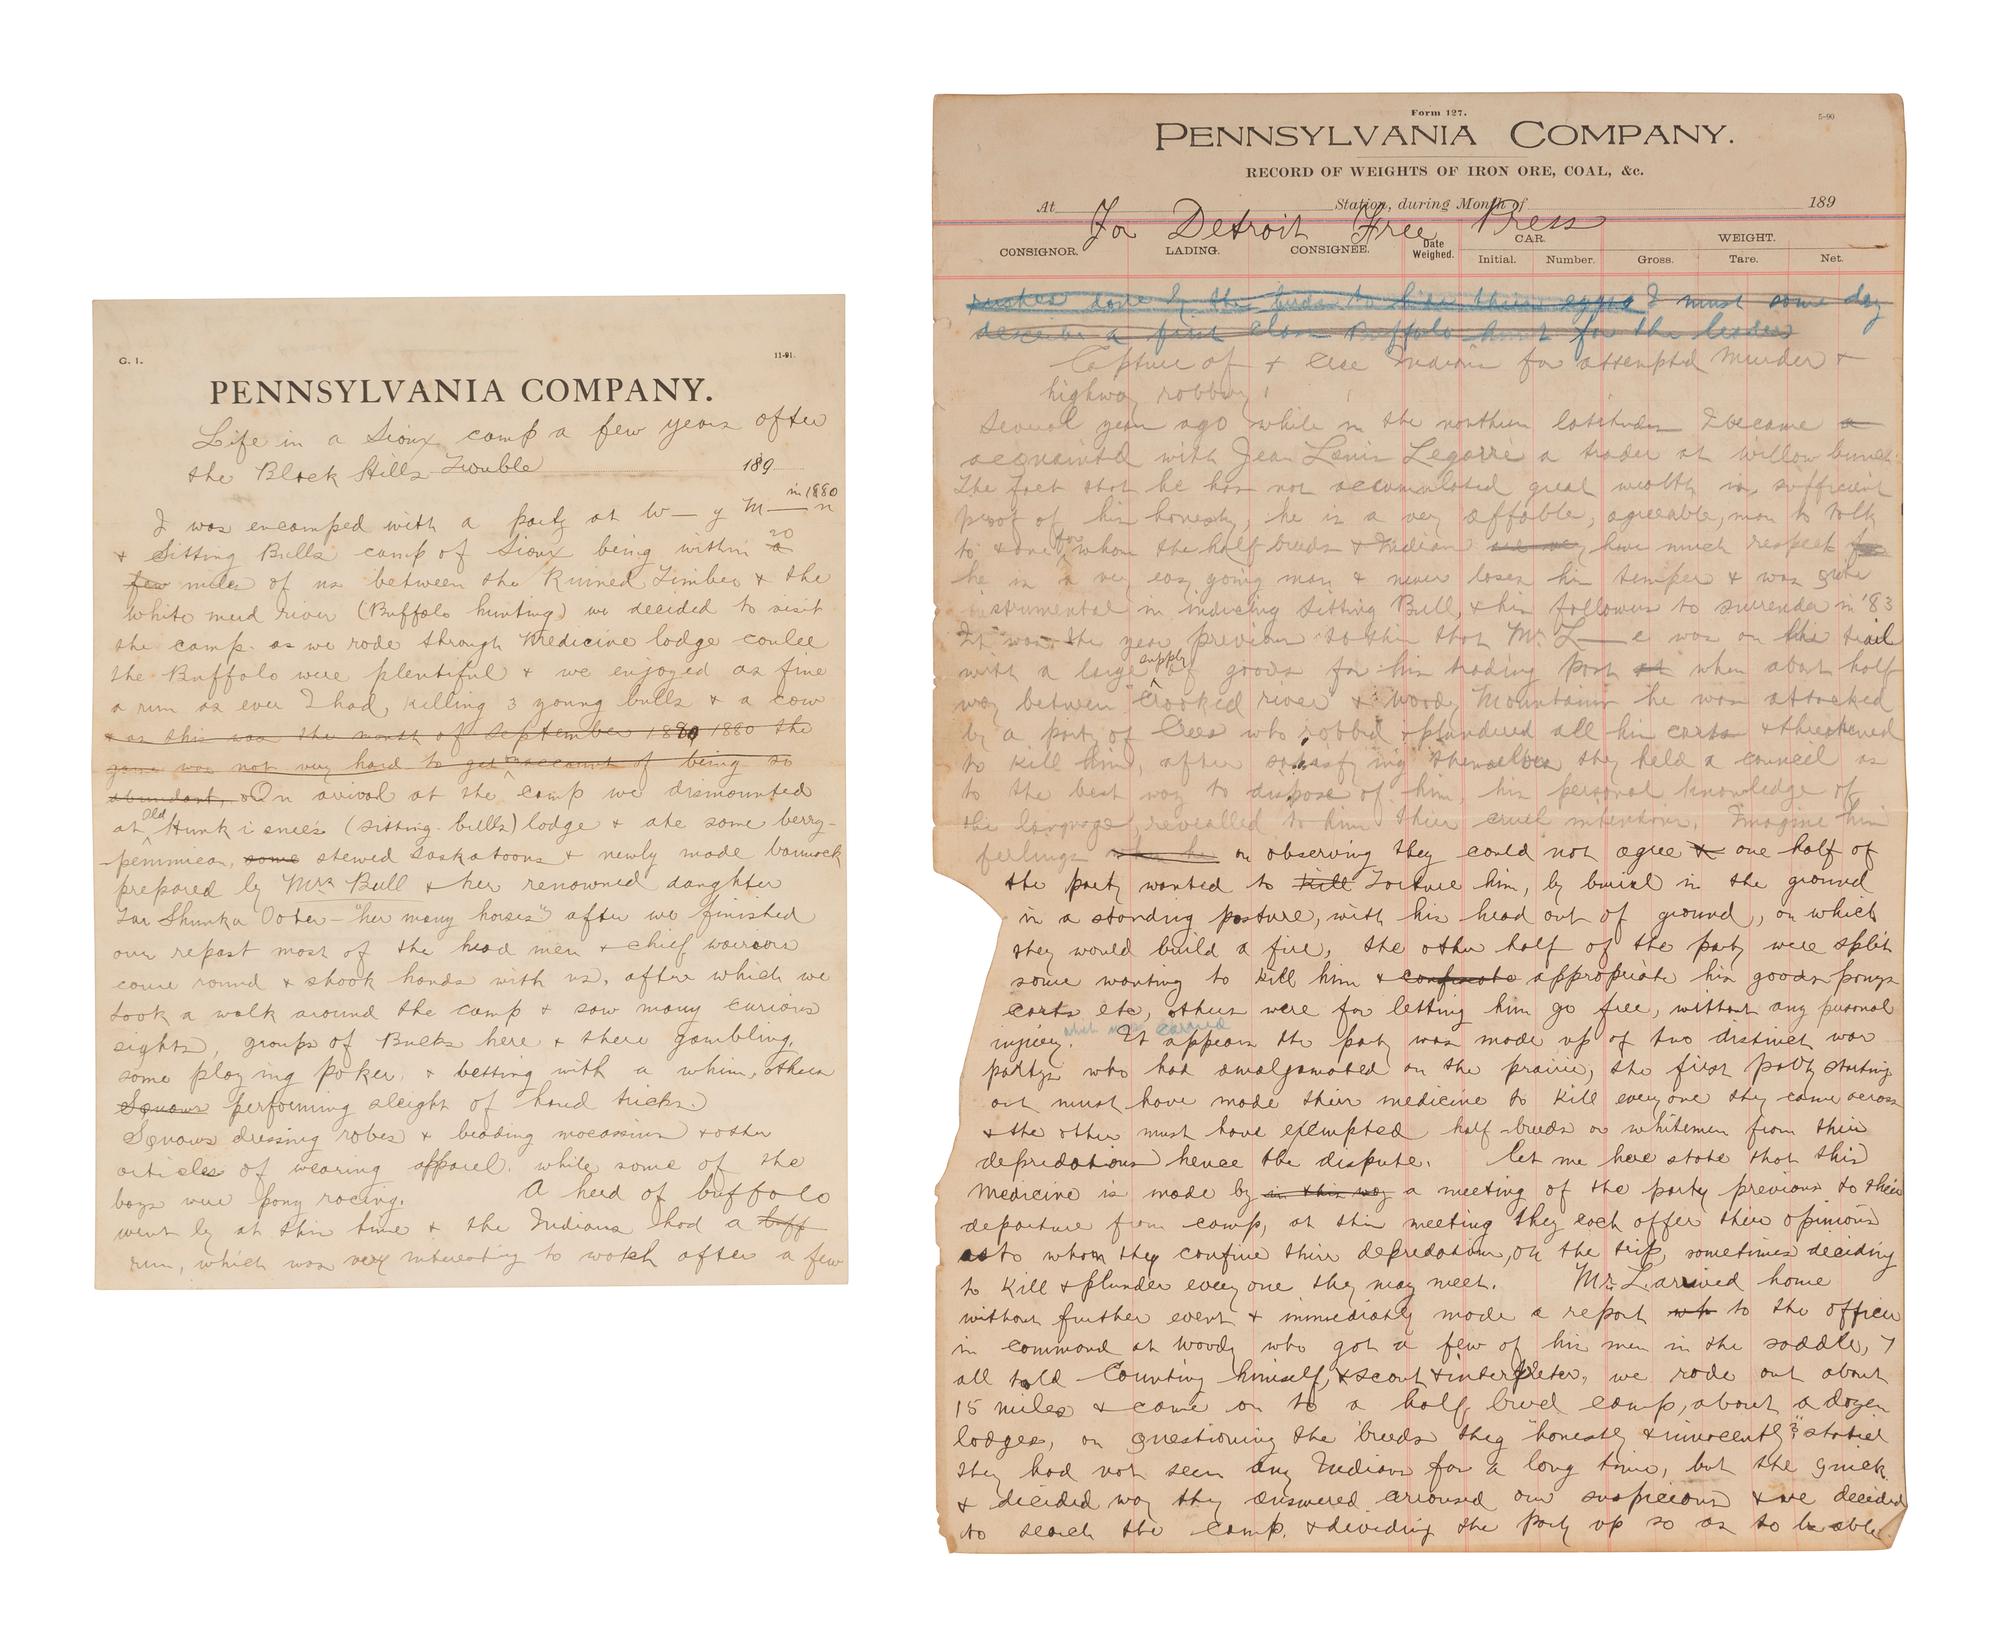 G. I.
11-91.
PENNSYLVANIA COMPANY.
Life in a Sioux camp a few years after
the Black Hills Trouble 189
in 1880
I was encamped with a party at W— y M— n
20
& Sitting Bulls camp of Sioux being within a
few miles of us between the Ruined Timber & the
White mud river (Buffalo hunting) we decided to visit
the camp. as we rode through Medicine lodge coulee
the Buffalo were plentiful & we enjoyed as fine
a run as ever I had, killing 3 young bulls & a cow
& as this was the month of September 1880 1880 the
game was not very hard to get on account of being so
abundant, On arival at the camp we dismounted
old
at Hunk i snee's (Sitting-bulls) lodge & ate some berry-
-pemmican, some stewed Saskatoons & newly made bannock
prepared by Mrs Bull & her renowned daughter
Tar Shunka Oota — "her many horses" after we finished
our repast most of the head men & chief warriors
came round & shook hands with us, after which we
took a walk around the camp & saw many curious
sights, groups of Bucks here & there gambling,
some playing poker, & betting with a whim, others
Squaws performing sleight of hand tricks.
Squaws dressing robes & beading mocassins & other
articles of wearing apparel. while some of the
boys were pony racing. A herd of buffalo
went by at this time & the Indians had a buff
run, which was very interesting to watch after a few
Form 127.
5-90
PENNSYLVANIA COMPANY.
RECORD OF WEIGHTS OF IRON ORE, COAL, &c.
At Station, during Month of 189
For Detroit Free Press
CONSIGNOR. LADING. CONSIGNEE. Date Weighed. CAR. WEIGHT.
Initial. Number. Gross. Tare. Net.
done by the birds to hide their eggs I must some day
describe a first class Buffalo hunt for the leader
Capture of 7 Cree Indians for attempted Murder &
highway robbery!
Several years ago while in the northern latitudes I became a
acquainted with Jean Louis Legarre a trader at willow bunch.
The fact that he has not accumulated great wealth is sufficient
proof of his honesty, he is a very affable, agreeable, man to talk
to & one for whom the half breeds & Indians have much respect for
he is a very easy going man & never loses his temper & was quite
instrumental in inducing Sitting Bull, & his followers to surrender in '83
It was the year previous to this that Mr. L—e was on the trail
with a large supply of goods for his trading post at when about half
way between Crooked river & Woody Mountains he was attacked
by a party of Crees who robbed & plundered all his carts & threatened
to kill him, after satisfying themselves they held a council as
to the best way to dispose of him, his personal knowledge of
the language, revealled to him their cruel intentions. Imagine his
feelings when he on observing they could not agree & one half of
the party wanted to kill Torture him, by burial in the ground
in a standing posture, with his head out of ground, on which
they would build a fire, the other half of the party were split
some wanting to kill him & confiscate appropriate his goods ponys
carts etc, others were for letting him go free, without any personal
which was carried
injury. It appears the party was made up of two distinct war
partys who had amalgamated on the prairie, the first party starting
out must have made their medicine to kill every one they came across
& the other must have exempted half-breeds or whitemen from their
depredations hence the dispute. Let me here state that this
Medicine is made by in this way a meeting of the party previous to their
departure from camp, at this meeting they each offer their opinions
as to whom they confine their depredation, on the trip, sometimes deciding
to kill & plunder every one they may meet. Mr. L. arrived home
without further event & immediately made a report to the officer
in command at Woody who got a few of his men in the saddle, 7
all told Counting himself, & scout & interpreter, we rode out about
15 miles & came on to a half breed camp, about a dozen
lodges, on questioning the breeds they "honestly & innocently?" stated
they had not seen any Indians for a long time, but the quick
& decided way they answered aroused our suspicions & we decided
to search the camp, & dividing the party up so as to be able